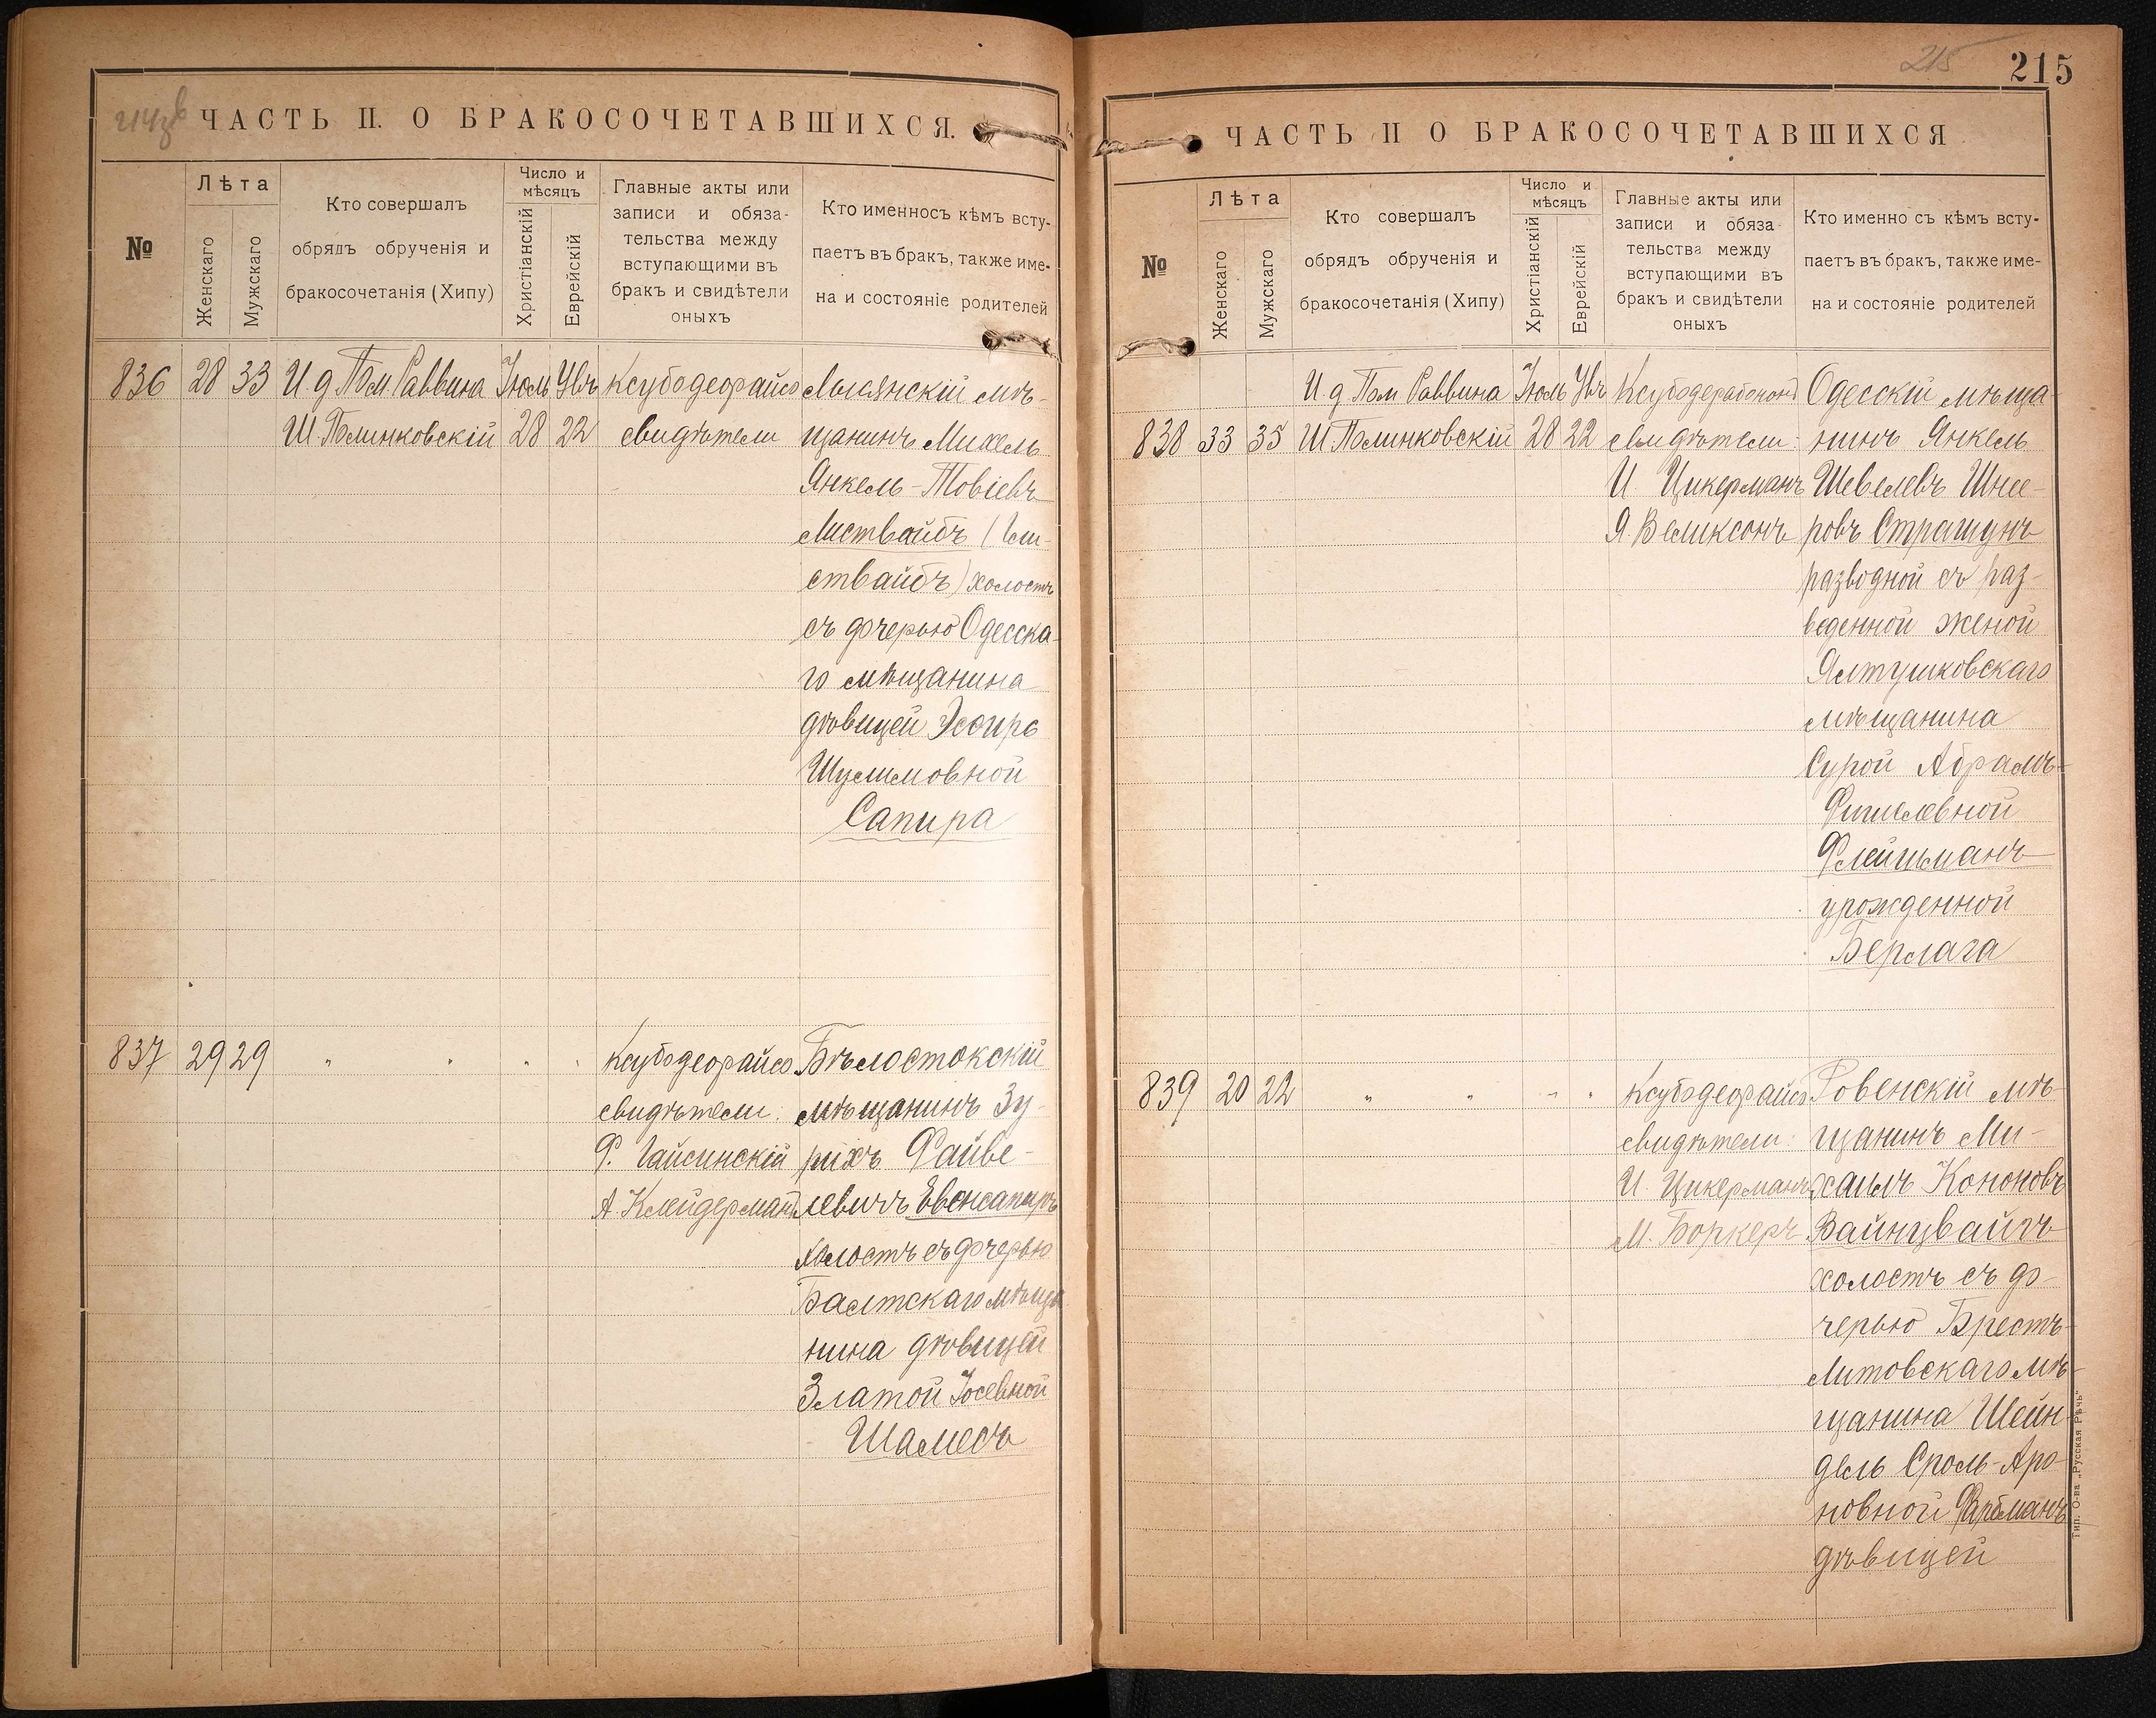 ЧАСТЬ II. О БРАКОСОЧЕТАВШИХСЯ.
№
Лѣта
Женскаго
Мужскаго
Кто совершалъ
обрядъ обрученія и
бракосочетанія (Хипу)
Число и
мѣсяцъ
Христіанскій
Еврейскій
Главные акты или
записи и обяза-
тельства между
вступающими въ
бракъ и свидѣтели
оныхъ
Кто именносъ кѣмъ всту-
паетъ въ бракъ, также име-
на и состояніе родителей
836 28 33
И. д Пом. Раввина
Ш Полинковскій
Іюль
28
22
свидѣтели
мѣ-
щанинъ Михель
Янкель-Товіевъ
Листвайбъ (Гли-
ствайбъ) холостъ
съ дочерью Одесска-
го мѣщанина
дѣвицей Эсѳирь
Шулимовной
Сапира
837 29 29
" " " "
Ксубодеорайсо
свидѣтели:
Ф. Гайсинскій
А. Клейдерманъ
Бѣлостокскій
мѣщанинъ Зу-
рихъ Файве-
левичъ
холостъ съ дочерью
Балтскаго мѣща
нина дѣвицей
Златой Іосевной
Шамесъ
215
215
ЧАСТЬ II О БРАКОСОЧЕТАВШИХСЯ
№
Лѣта
Женскаго
Мужскаго
Кто совершалъ
обрядъ обрученія и
бракосочетанія (Хипу)
Число и
мѣсяцъ
Христіанскій
Еврейскій
Главные акты или
записи и обяза-
тельства между
вступающими въ
бракъ и свидѣтели
оныхъ
Кто именно съ кѣмъ всту-
паетъ въ бракъ, также име-
на и состояніе родителей
838 33 35
И. д Пом Раввина
Ш Полинковскій
Іюль
28
22
свидѣтели:
И Цикерманъ
Я. Великсонъ
Одесскій мѣща-
нинъ Янкель
Шевелевъ Шнее-
ровъ Страшунъ
разводной съ раз-
веденной женой
Ялтушковскаго
мѣщанина
Сурой Абрамъ-
Фишелевной
Флейшманъ
урожденной
Берлага
839 20 22
" " " "
Ксубодеорайсо
свидѣтели:
И. Цикерманъ
М. Боркеръ
Ровенскій мѣ-
щанинъ Ми-
хаилъ Кононовъ
Вайнцвайгъ
холостъ съ до-
черью Брестъ-
Литовскаго мѣ-
щанина Шейн-
дель Сроль-Аро-
новной Фарбманъ
дѣвицей
Тип. О-ва „Русская Рѣчь"